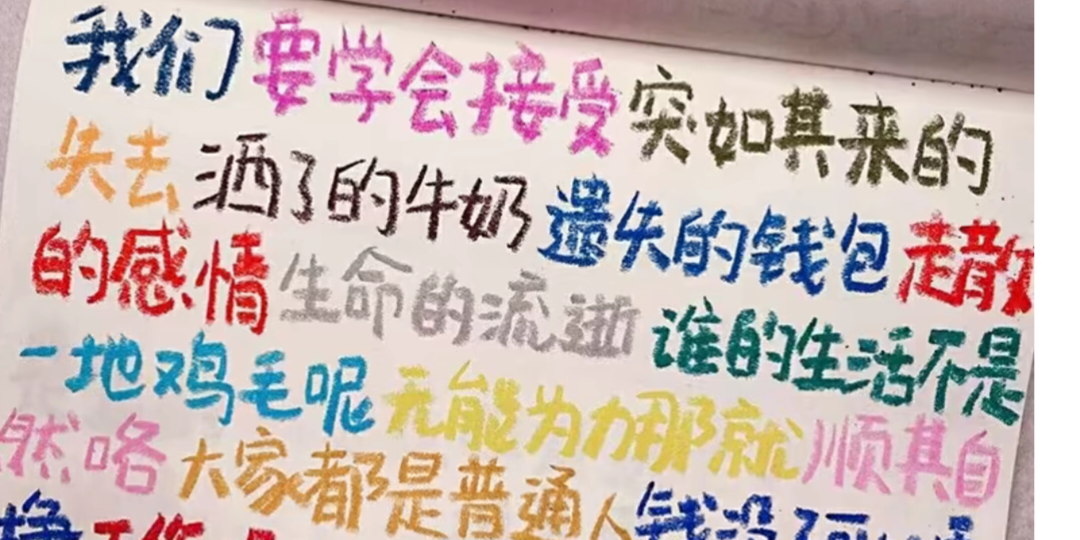 我们要学会接受突如其来的
失去洒了的牛奶遗失的钱包走散
的感情生命的流逝谁的生活不是
一地鸡毛呢无能为力那就顺其自
然咯大家都是普通人钱没了